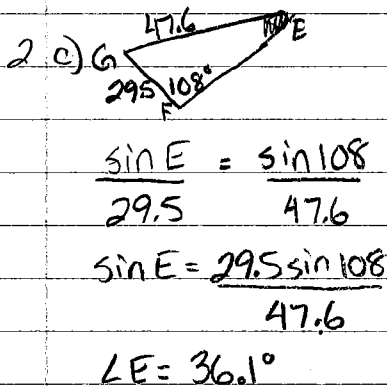 2 c) G 47.6 E
29.5 108° F
sin E = sin 108
29.5 47.6
sin E = 29.5 sin 108
47.6
∠E = 36.1°